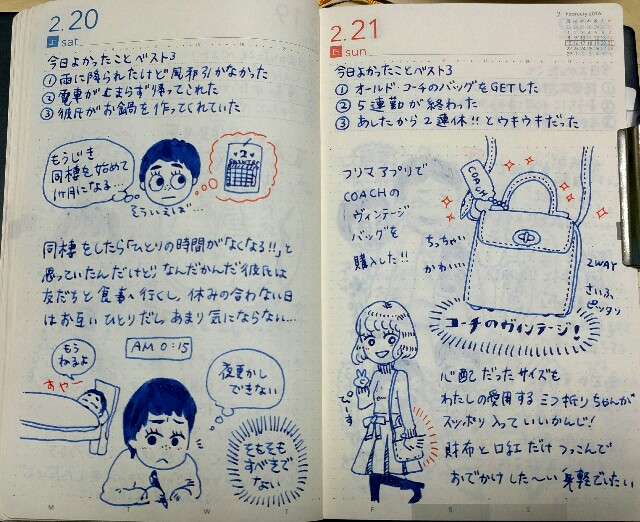 2.20
土 sat
今日よかったことベスト3
① 雨に降られたけど風邪引かなかった
② 電車が止まらず帰ってこれた
③ 彼氏がお鍋を作ってくれていた
もうじき
同棲を始めて
1ヶ月になる…
2
そういえば…
同棲をしたら「ひとりの時間がなくなる!!」と
思っていたんだけど、なんだかんだ彼氏は
友だちと食事へ行くし、休みの合わない日
はお互いひとりだし、あまり気にならない…
もう
ねるよ
すやー
AM 0:15
夜更かし
できない
そもそも
すべきで
ない
M T W T
2.21
日 sun
2 February 2016
今日よかったことベスト3
① オールド・コーチのバッグをGETした
② 5連勤が終わった
③ あしたから2連休!!とウキウキだった
フリマアプリで
COACHの
ヴィンテージ
バッグを
購入した!!
COACH
ちっちゃい
かわいい
2WAY
さいふ
ピッタリ
コーチのヴィンテージ!
心配だったサイズも
わたしの愛用する三つ折りちゃんが
スッポリ入っていいかんじ!
財布と口紅だけつっこんで
おでかけした〜い 身軽でいたい
F S S